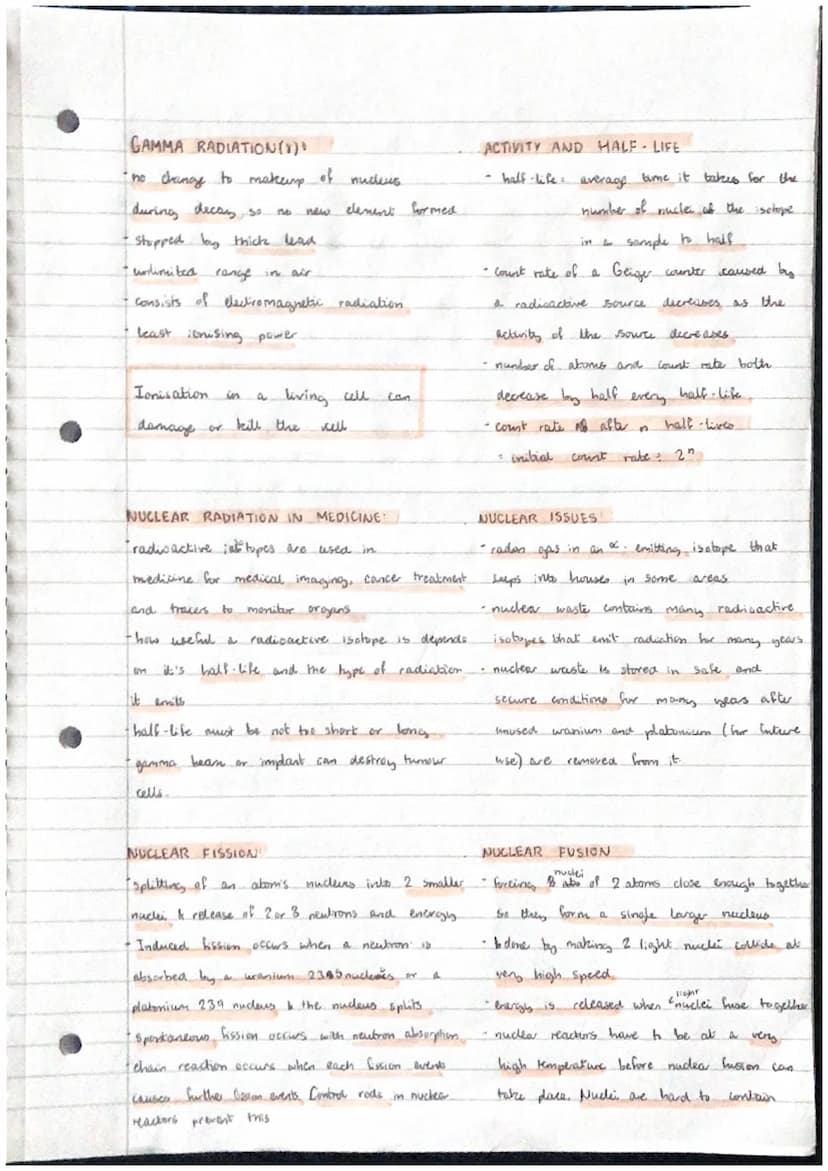 GAMMA RADIATION(γ):
- no change to makeup of nucleus
during decay, so no new element formed
- stopped by thick lead
- unlimited range in air
- consists of electromagnetic radiation
- least ionising power
Ionisation in a living cell can
damage or kill the cell
ACTIVITY AND HALF-LIFE
- half-life: average time it takes for the
number of nuclei of the isotope
in a sample to half
- count rate of a Geiger counter caused by
a radioactive source decreases as the
activity of the source decreases
- number of atoms and count rate both
decrease by half every half-life
- count rate after n half-lives
= initial count rate ÷ 2ⁿ
NUCLEAR RADIATION IN MEDICINE:
- radioactive isotopes are used in
medicine for medical imaging, cancer treatment
and tracers to monitor organs
- how useful a radioactive isotope is depends
on it's half-life and the type of radiation
it emits
- half-life must be not too short or long
- gamma beam or implant can destroy tumour
cells.
NUCLEAR ISSUES:
- radon gas in an α-emitting isotope that
seeps into houses in some areas
- nuclear waste contains many radioactive
isotopes that emit radiation for many years
- nuclear waste is stored in safe and
secure conditions for many years after
unused uranium and platonium (for future
use) are removed from it.
NUCLEAR FISSION:
- splitting of an atom's nucleus into 2 smaller
nuclei & release of 2 or 3 neutrons and energy
- Induced fission occurs when a neutron is
absorbed by a uranium 235 nucleus or a
platonium 239 nucleus & the nucleus splits
- spontaneous fission occurs with neutron absorption
- chain reaction occurs when each fission events
causes further fission events. Control rods in nuclear
reactors prevent this
NUCLEAR FUSION
- forcing nuclei of 2 atoms close enough together
so they form a single larger nucleus
- done by making 2 light nuclei collide at
very high speed
- energy is released when 2 light nuclei fuse together
- nuclear reactors have to be at a very
high temperature before nuclear fusion can
take place. Nuclei are hard to contain